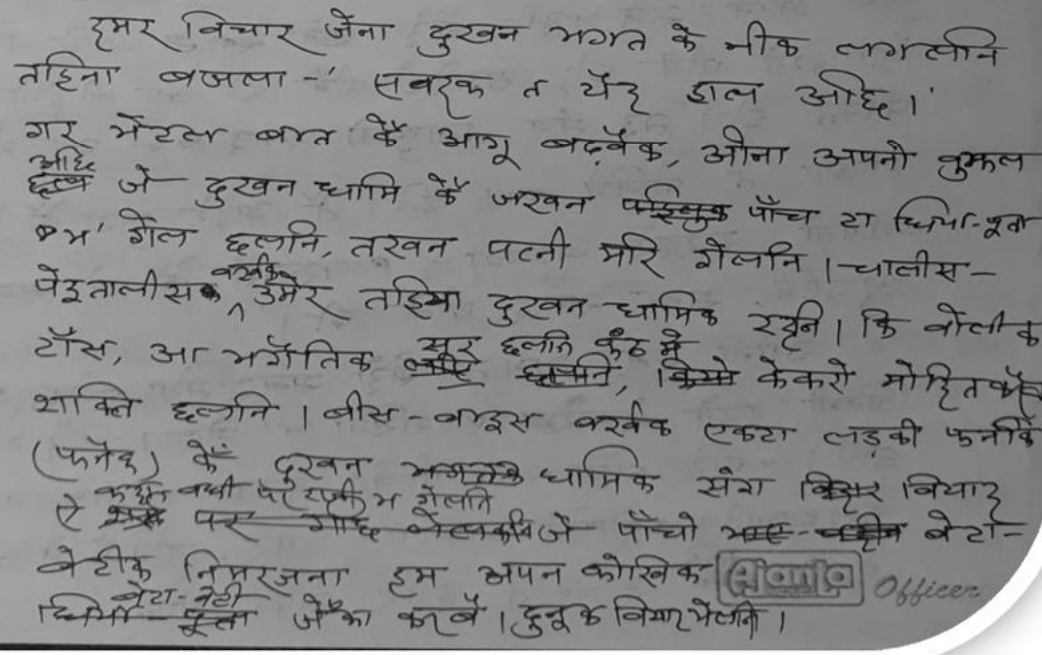 हमर विचार जेना दुखन भगत के नीक लगलनि
तहिना बजला -' सबहक त यैह हाल अछि।'
गर भेटल बात कें आगू बढ़बैक, ओना अपनो बुझल
अछि
छल जे दुखन धामि कें जखन पाँच टा धिया-पूता
भ' गेल छलनि, तखन पत्नी मरि गेलनि। चालीस-
वर्षक
पेंइतालीसक उमेर तहिया दुखन धामिक रहनि। कि बोलीक
सुर छलनि कंठ मे
टाँस, आ भगैतिक छलनि, किया केकरो मोहित
शक्ति छलनि। बीस-बाइस वर्षक एकटा लड़की
(फनैक) कें दुखन धामिक संग विचार
ऐ पर जे पाँचो बेटा-
बेटीक निमरजना हम अपन कोखिक Ajanta Officer
बेटा-बेटी
धिया-पूता जेंका करबै। दुनूक